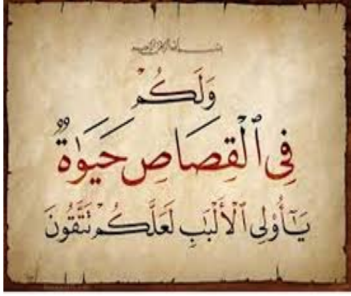 بسم الله الرحمن الرحيم
وَلَكُمْ
فِى ٱلْقِصَاصِ حَيَوٰةٌ
يَـٰٓأُو۟لِى ٱلْأَلْبَـٰبِ لَعَلَّكُمْ تَتَّقُونَ